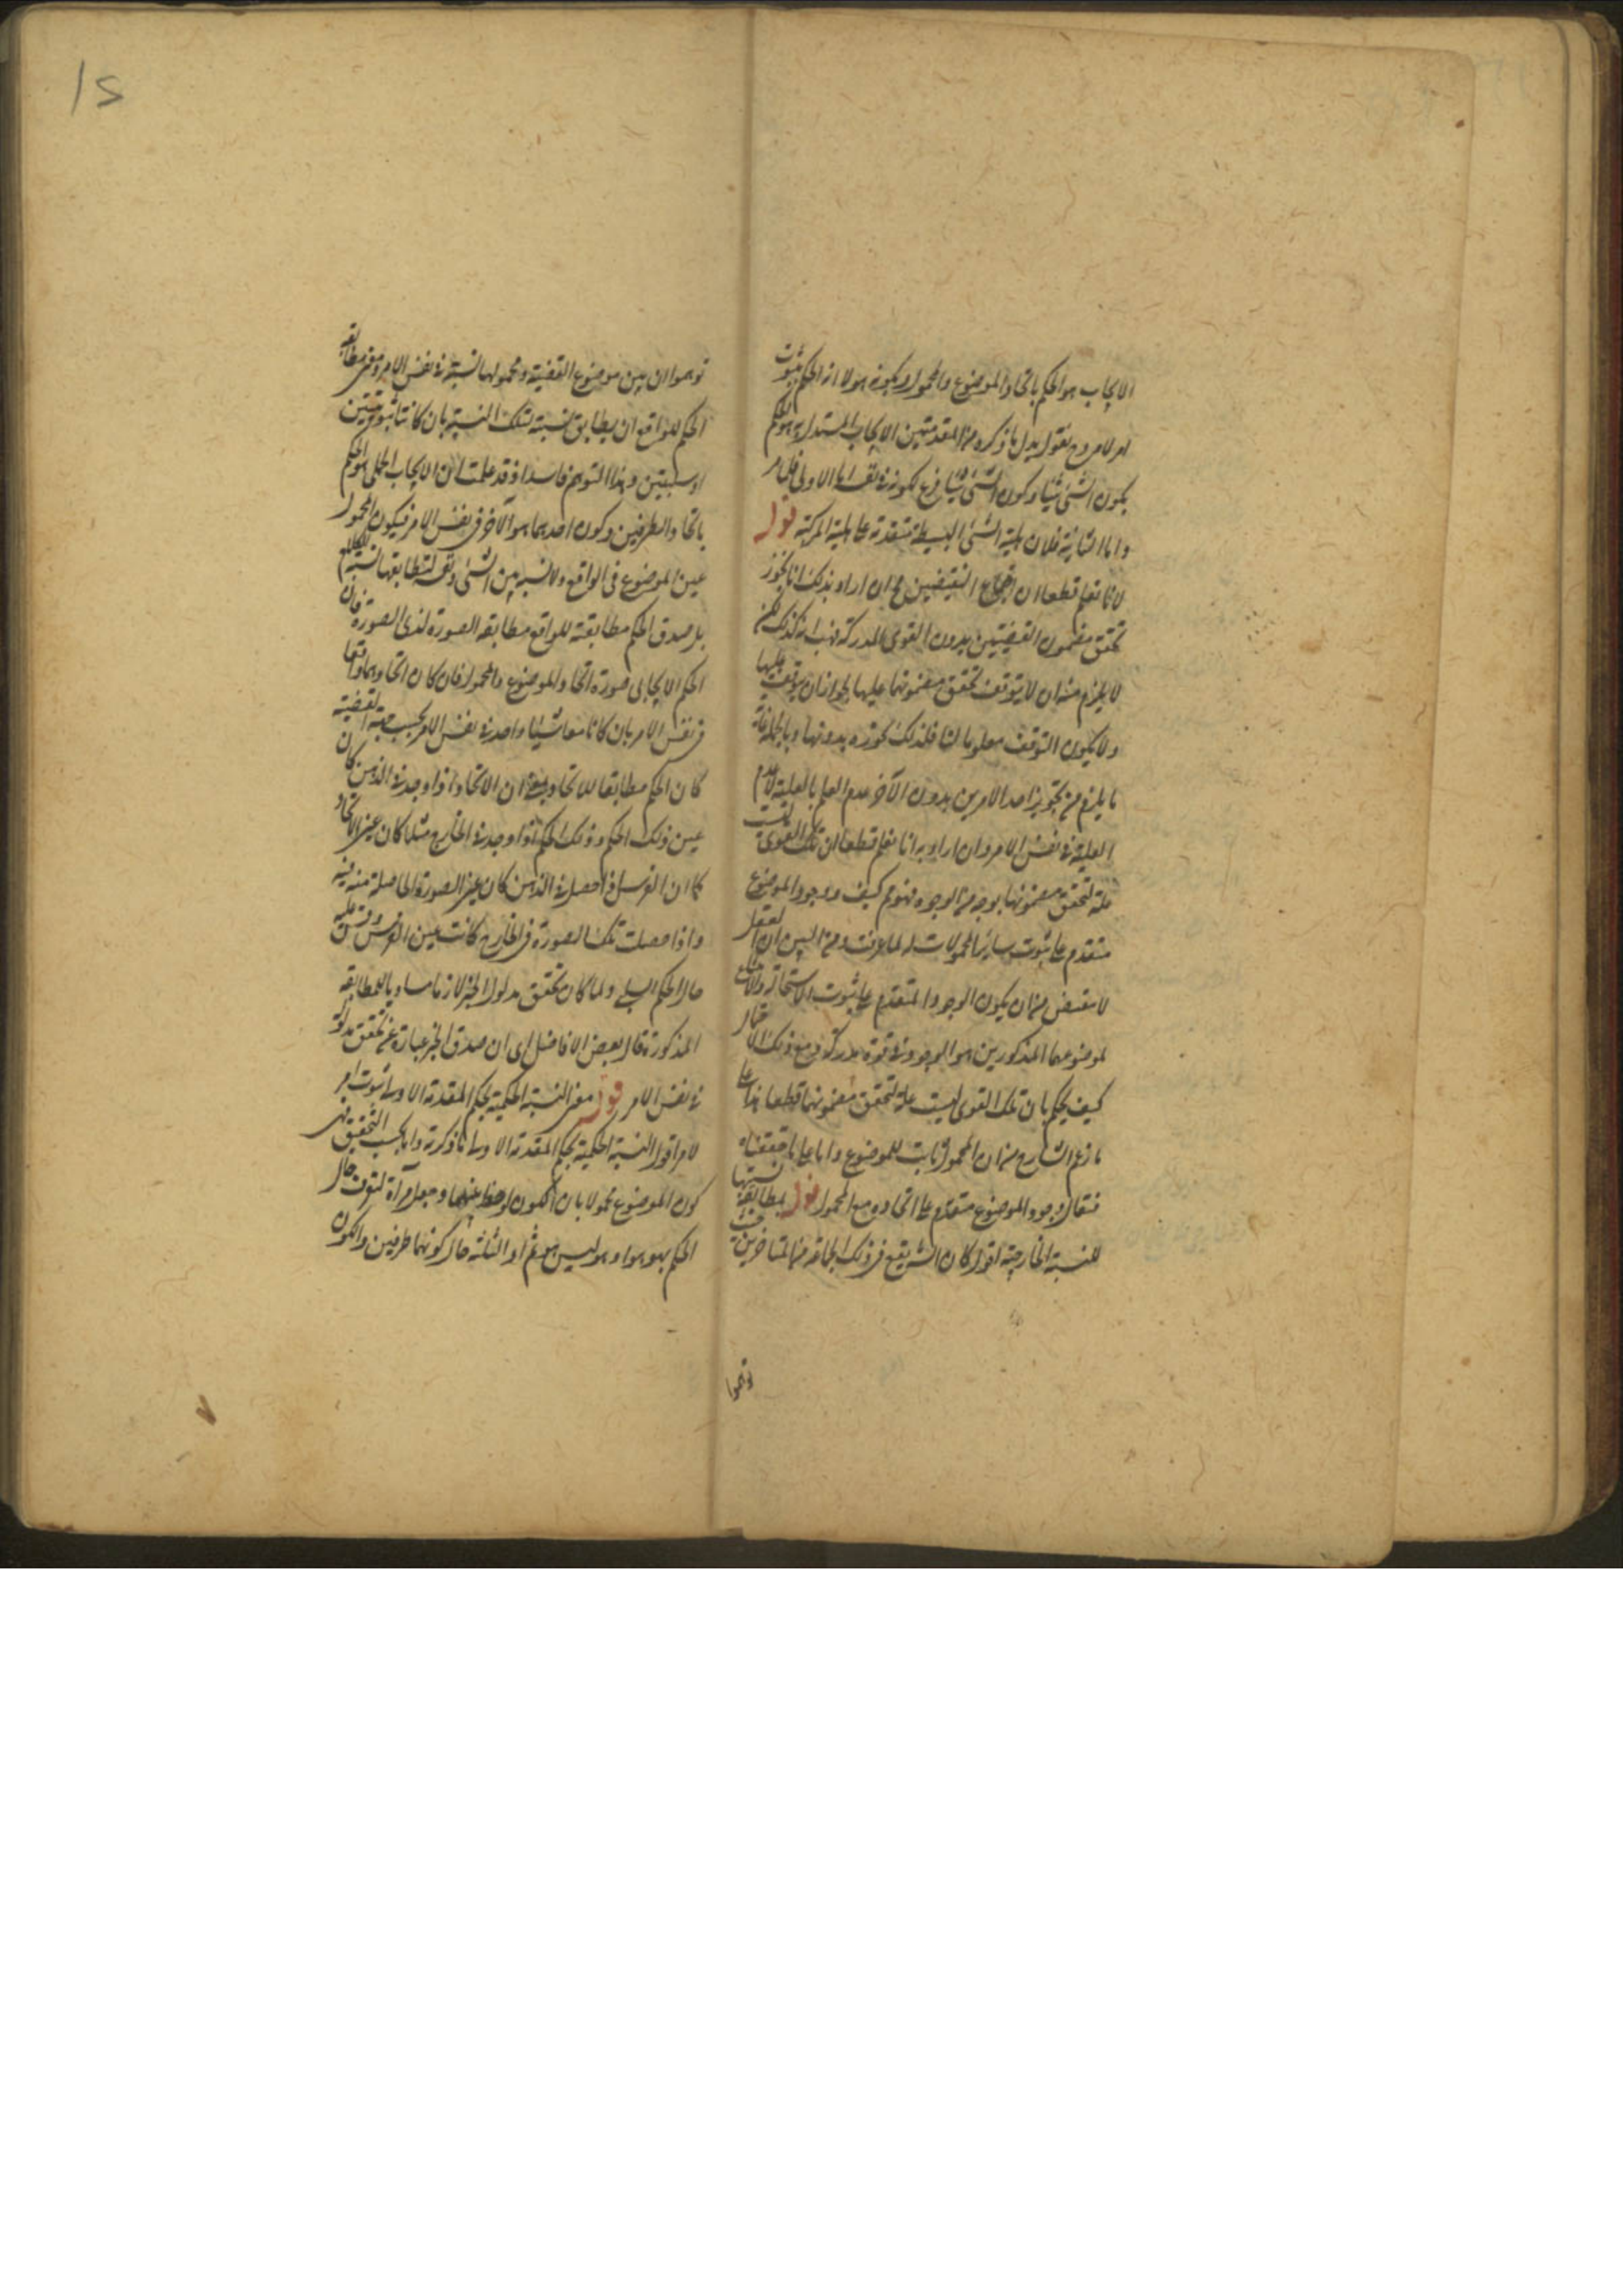 الايجاب هو الحكم باتحاد الموضوع والمحمول وبكونه هو لا انه الحكم بثبوت
امر لامر وح نقول يدل ما ذكره من المقدمتين الايجاب المستدل به هو الحكم
بكون الشئ شيئا وكون الشئ شيئا فرع لكونه في نفسه اما الاولى فظاهر
واما الثانية فلان هلية الشئ البسيطة متقدمة على هلية المركبة قوله
لانا نعلم قطعا ان اجتماع النقيضين مح ان اراد بذلك انا نجوز
تحقق مضمون القضيتين بدون القوى المدركة فهب انه كذلك لكن
لا يلزم منه ان لا يتوقف تحقق مضمونهما عليها لجواز ان يتوقف عليها
ولا يكون التوقف معلوما لنا فلذلك نجوزه بدونها وبالجملة غاية
ما يلزم من تجويز احد الامرين بدون الآخر عدم العلم بالعلية لا عدم
العلية في نفس الامر وان اراد به انا نعلم قطعا ان تلك القوى ليست
علة لتحقق مضمونها بوجه من الوجوه فهو مم كيف ووجود الموضوع
متقدم على ثبوت سائر المحمولات له لما عرفت ومن البين ان العقل
لا ينقبض من ان يكون الوجود المتقدم على ثبوت الاستحالة والامتناع
لموضوعهما المذكورين هو الوجود في قوة مدركة ومع ذلك الاحتمال
كيف يحكم بان تلك القوى ليست علة لتحقق مضمونهما قطعا هذا على
ما زعم الشارح من ان المحمول ثابت للموضوع واما على ما حققناه
فنقال وجود الموضوع متقدم على اتحاده مع المحمول قوله بمطابقة نسبتها
للنسبة الخارجية اقول كان الشه يقع في ذلك الجماعة من المتاخرين حيث
توهموا
توهموا ان بين موضوع القضية ومحمولها نسبة في نفس الامر ومعنى مطابقة
الحكم للواقع ان يطابق نسبته لتلك النسبة بان كانتا ثبوتيتين
او سلبيتين وهذا التوهم فاسد اذ قد علمت ان الايجاب الحملى هو الحكم
باتحاد الطرفين وكون احدهما هو الآخر في نفس الامر فيكون المحمول
عين الموضوع في الواقع ولا نسبة بين الشئ ونفسه لتطابقها نسبة الحكم
بل صدق الحكم مطابقته للواقع مطابقة الصورة لذى الصورة فان
الحكم الايجابى صورة اتحاد الموضوع والمحمول فان كان اتحادهما واقعا
في نفس الامر بان كانا معا شيئا واحدا في نفس الامر بحسب جهة القضية
كان الحكم مطابقا للاتحاد بمعنى ان الاتحاد اذا وجد في الذهن كان
عين ذلك الحكم وذلك الحكم اذا وجد في الخارج مثلا كان عين الاتحاد
كما ان الفرس اذا حصل في الذهن كان عين الصورة الحاصلة منه فيه
واذا حصلت تلك الصورة في الخارج كانت عين الفرس وقس عليه
حال الحكم السلبى ولما كان تحقق مدلول الخبر لازما مساويا للمطابقة
المذكورة قال بعض الافاضل اى ان صدق الخبر عبارة عن تحقق مدلوله
في نفس الامر قوله معنى النسبة الحكمية بحكم المقدمة الاولى ثبوت امر
لامر اقول النسبة الحكمية بحكم المقدمة الاولى ما ذكرته واما بحسب التحقيق فهى
كون الموضوع محمولا بان الكون لوحظ بينهما وجعل مرآة لتعرف حال
الحكم بهو هو او هو ليس هو ثم هذه الثلثة حال كونهما طرفين والكون